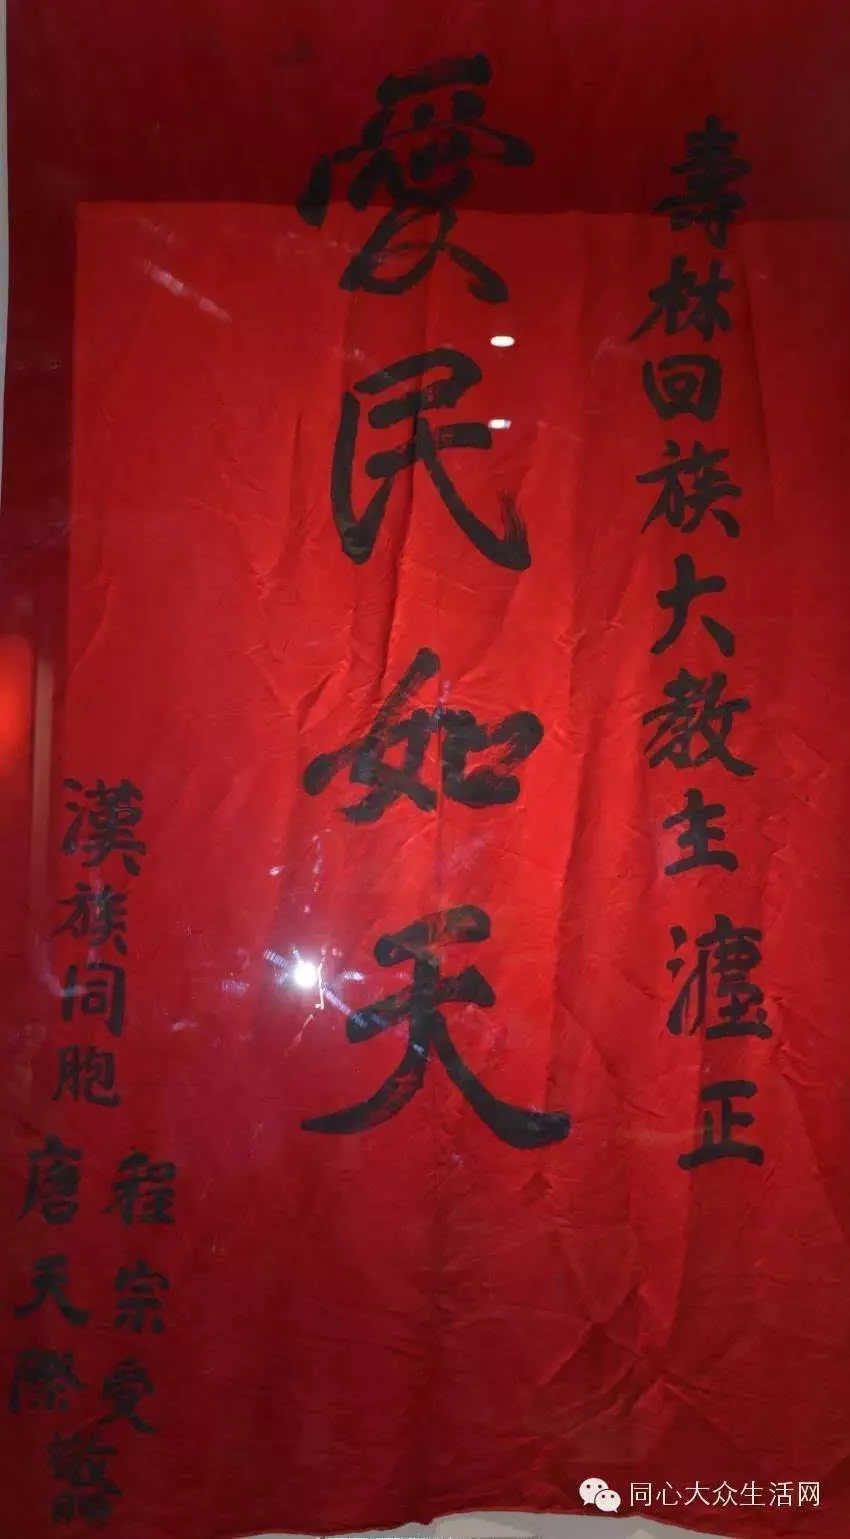 壽林回族大教主 正
愛民如天
漢族同胞
程宗受
唐天際
敬贈
同心大众生活网